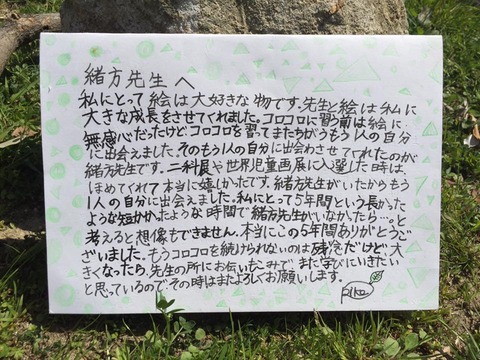 緒方先生へ
私にとって絵は大好きな物です。先生と絵は私に
大きな成長をさせてくれました。コロコロに習う前は絵に
無感心だったけどコロコロを習ってまたちがうもう1人の自分
に出会えました。そのもう1人の自分に出会わさせてくれたのが
緒方先生です。二科展や世界児童画展に入選した時は、
ほめてくれて本当に嬉しかったです。緒方先生がいたからもう
1人の自分に出会えました。私にとって5年間という長かった
ような短かかたような時間で緒方先生がいなかたら…。と
考えると想像もできません。本当にこの5年間ありがとうご
ざいました。もうコロコロを続けられないのは残念だけど、大
きくなったら、先生の所にお伝いもこみでまた学びにいきたい
と思っているのでその時はまたよろしくお願いします。